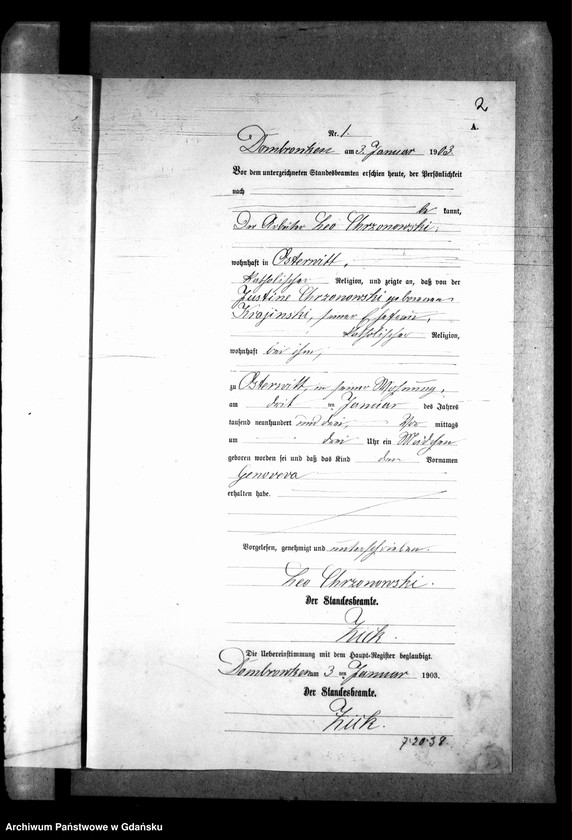 2
A.
Nr. 1.
Dombrowken am 3. Januar 1903
Vor dem unterzeichneten Standesbeamten erschien heute, der Persönlichkeit
nach
be kannt,
Der Arbeiter Leo Chrzonowski,
wohnhaft in Osterwitt,
katholischer Religion, und zeigte an, daß von der
Justine Chrzonowski geborenen
Krajinski, seiner Ehefrau,
katholischer Religion,
wohnhaft bei ihm,
zu Osterwitt, in seiner Wohnung,
am drit ten Januar des Jahres
tausend neunhundert und drei, Vor mittags
um drei Uhr ein Mädchen
geboren worden sei und daß das Kind den Vornamen
Genoveva
erhalten habe.
Vorgelesen, genehmigt und unterschrieben.
Leo Chrzonowski.
Der Standesbeamte.
Die Uebereinstimmung mit dem Haupt-Register beglaubigt.
Dombrowken am 3 ten Januar 1903.
Der Standesbeamte.
7.20.38.
Archiwum Państwowe w Gdańsku